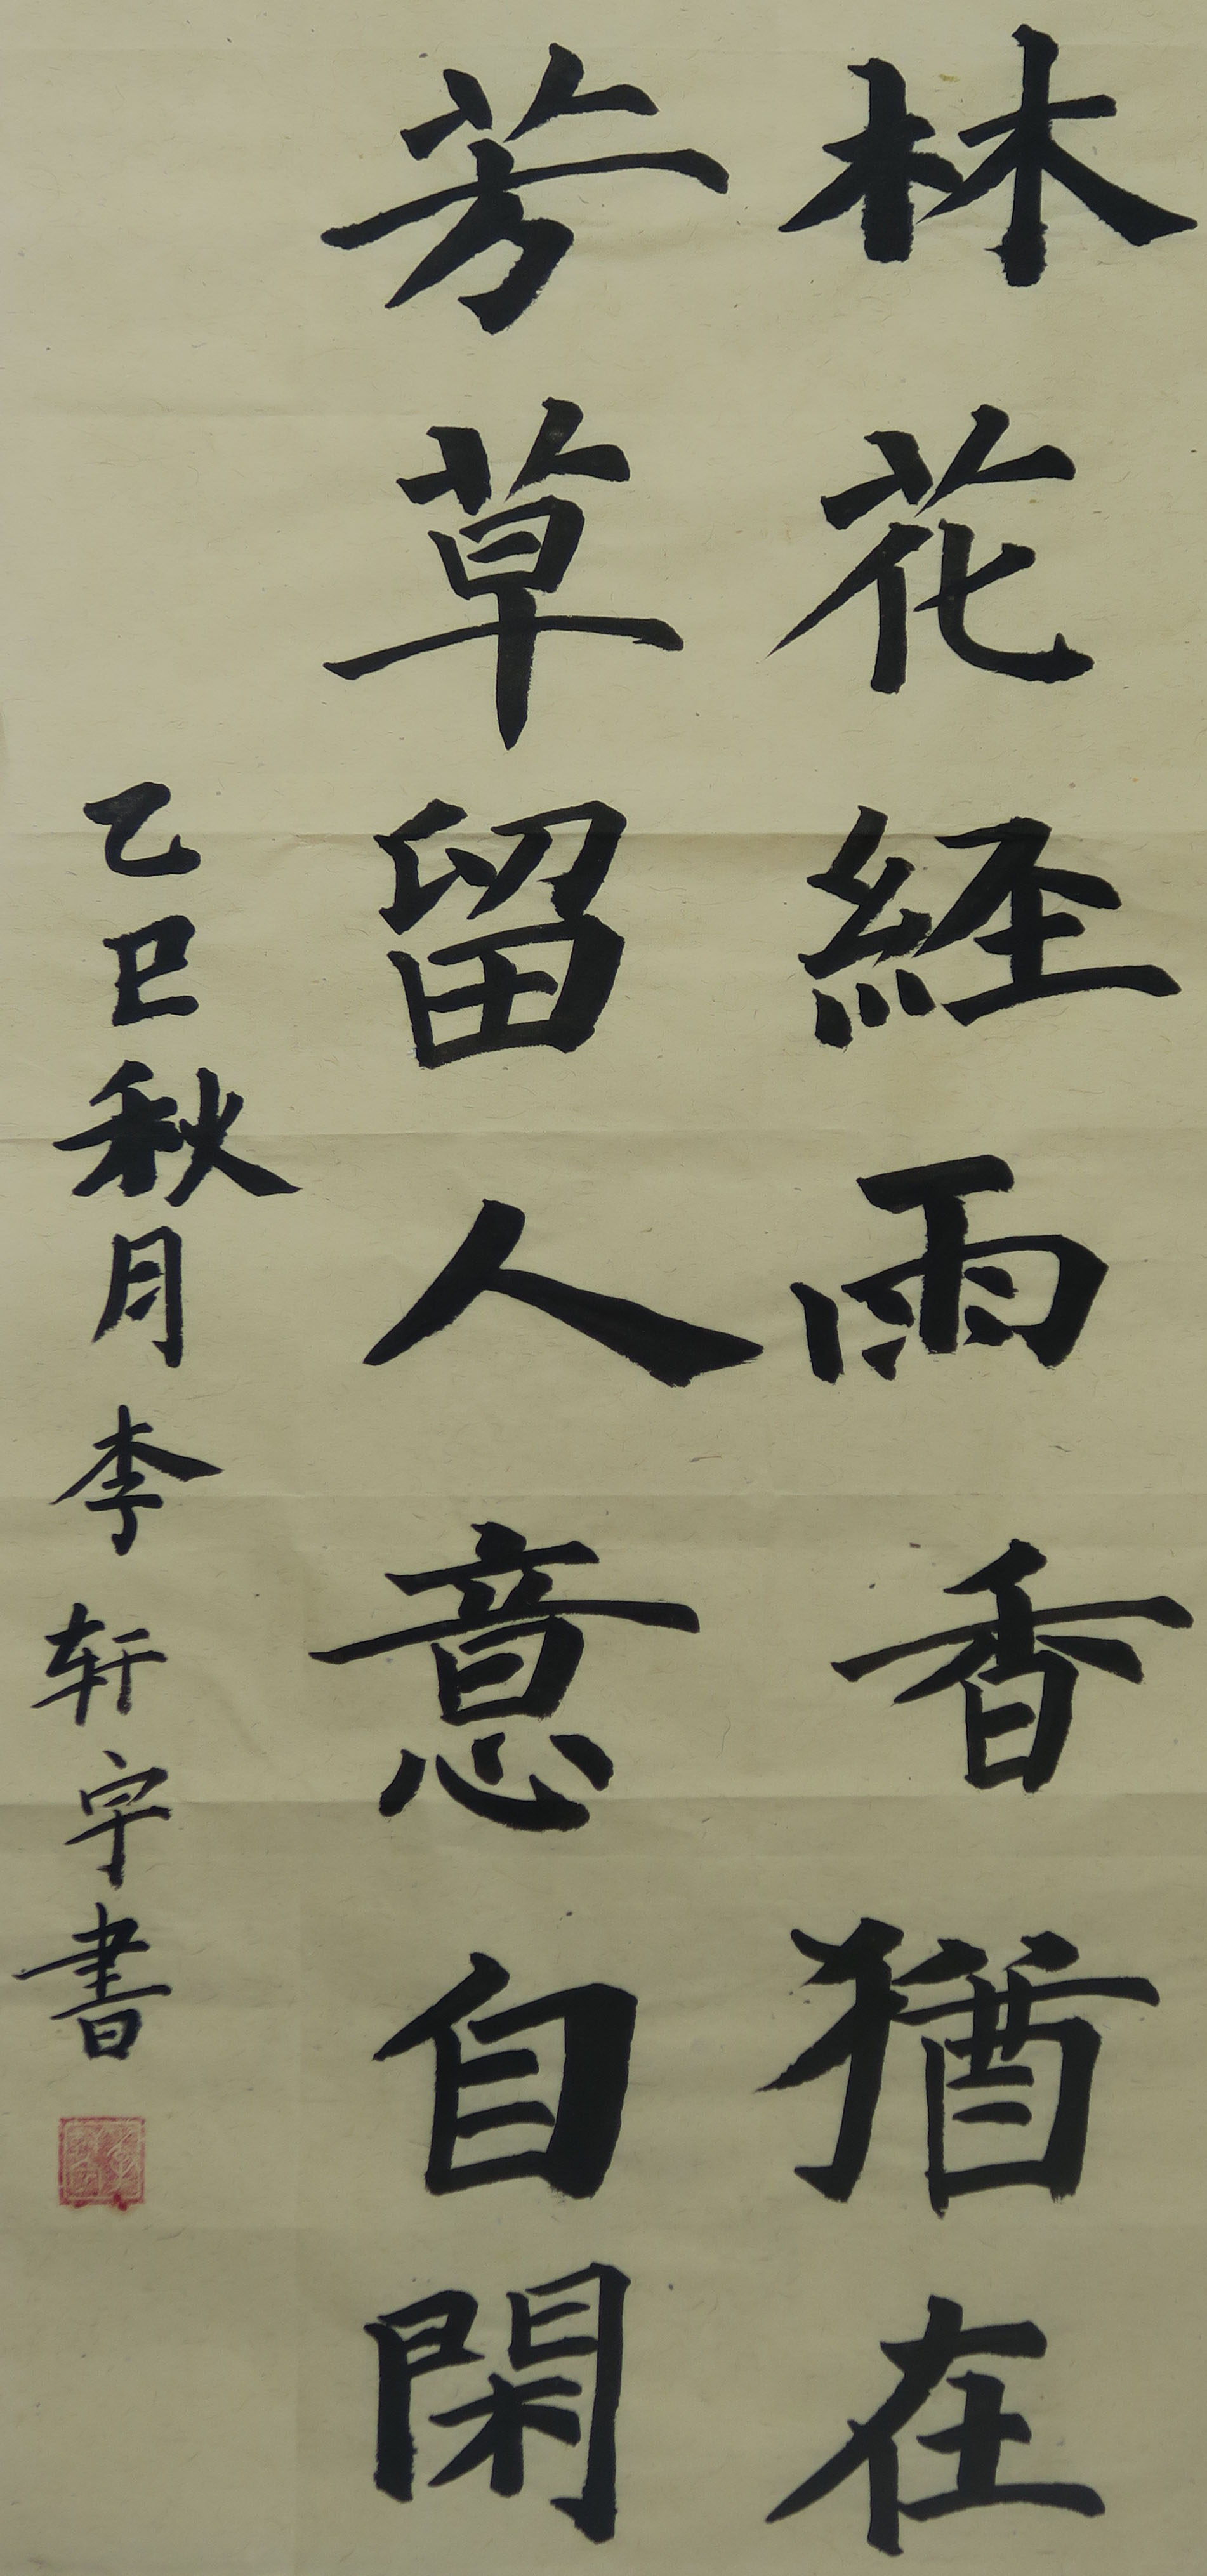 林花経雨香猶在
芳草留人意自閑
乙巳秋月李轩宇書